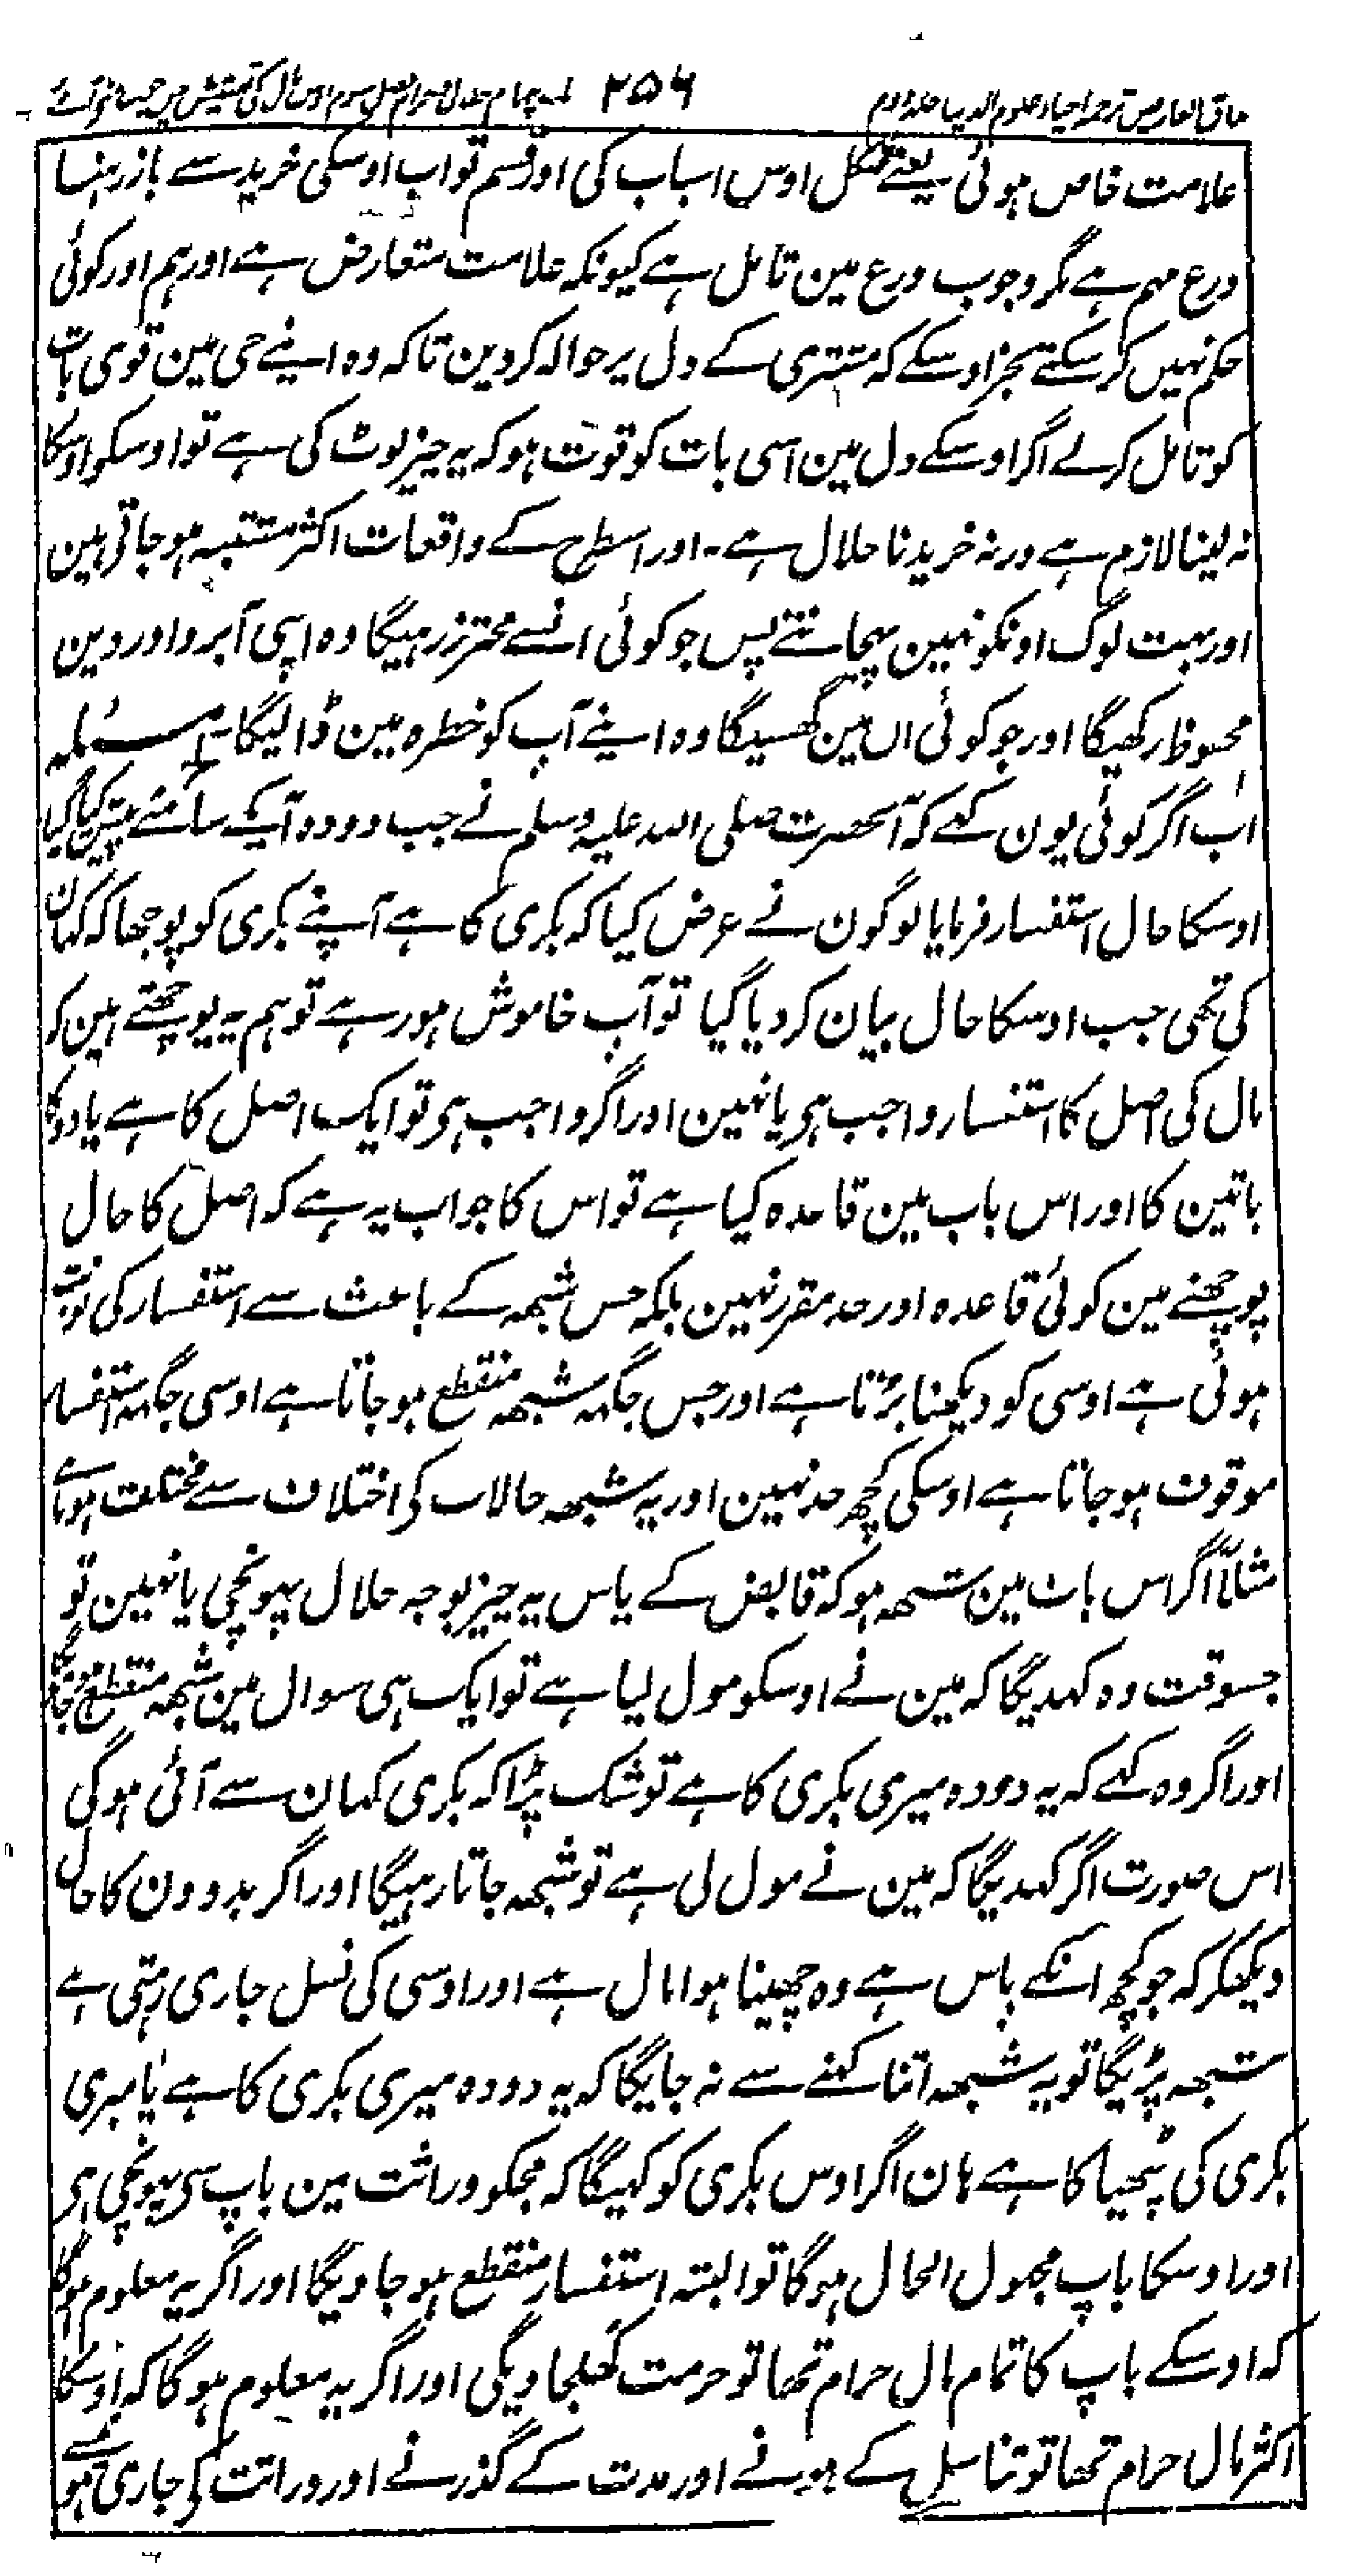 مذاق العارفین ترجمہ احیاء علوم الدین جلد دوم ۲۵۶
علامت خاص ہوئی یعنے شکل اوس اسباب کی اور قسم تو اب اوسکی خرید سے باز رہنا
ورع مہم ہے مگر وجوب ورع مین تامل ہے کیونکہ علامت متعارض ہے اور ہم اور کوئی
حکم نہیں کر سکتے بجز اوسکے کہ مشتری کے دل پر حوالہ کر دین تاکہ وہ اپنے جی مین قوی بات
کو تامل کر لے اگر اوسکے دل مین اسی بات کو قوت ہو کہ یہ چیز لوٹ کی ہے تو اوسکو اوسکا
نہ لینا لازم ہے ورنہ خریدنا حلال ہے۔ اور اسطرح کے واقعات اکثر مشتبہ ہو جاتی ہین
اور بہت لوگ اونکو نہین پہچانتے پس جو کوئی انسے محترز رہیگا وہ اپنی آبرو اور دین
محفوظ رکھیگا اور جو کوئی ان مین گھسیگا وہ اپنے آپ کو خطرہ مین ڈالیگا مسئلہ
اب اگر کوئی یون کہے کہ آنحضرت صلی اللہ علیہ وسلم نے جب دودہ آپکے سامنے پیش کیا گیا
اوسکا حال استفسار فرمایا لوگون نے عرض کیا کہ بکری کا ہے آپنے بکری کو پوچھا کہ کہان
کی تھی جب اوسکا حال بیان کر دیا گیا تو آپ خاموش ہو رہے تو ہم یہ پوچھتے ہین کہ
مال کی اصل کا استفسار واجب ہی یا نہین اور اگر واجب ہی تو ایک اصل کا ہے یا دو کا
باتین کا اور اس باب مین قاعدہ کیا ہے تو اس کا جواب یہ ہے کہ اصل کا حال
پوچھنے مین کوئی قاعدہ اور حد مقرر نہین بلکہ جس شبھہ کے باعث سے استفسار کی نوبت
ہوئی ہے اوسی کو دیکھنا پڑتا ہے اور جس جگہہ شبھہ منقطع ہو جاتا ہے اوسی جگہہ استفسار
موقوف ہو جاتا ہے اوسکی کچھ حد نہین اور یہ شبھہ حالات کی اختلاف سے مختلف ہوتا ہے
مثلاً اگر اس بات مین شبھہ ہو کہ قابض کے پاس یہ چیز بوجہ حلال پہونچی یا نہین تو
جسوقت وہ کہدیگا کہ مین نے اوسکو مول لیا ہے تو ایک ہی سوال مین شبھہ منقطع ہو جائیگا
اور اگر وہ کہے کہ یہ دودہ میری بکری کا ہے تو شک پڑا کہ بکری کہان سے آئی ہوگی
اس صورت اگر کہدیگا کہ مین نے مول لی ہے تو شبھہ جاتا رہیگا اور اگر بدوون کا حال
دیکھکر کہ جو کچھ انکے پاس ہے وہ چھینا ہوا مال ہے اور اوسی کی نسل جاری رہتی ہے
شبھہ پڑیگا تو یہ شبھہ اتنا کہنے سے نہ جایگا کہ یہ دودہ میری بکری کا ہے یا میری
بکری کی پٹھیا کا ہے ہان اگر اوس بکری کو کہیگا کہ مجکو وراثت مین باپ سی پہونچی ہی
اور اوسکا باپ مجہول الحال ہوگا تو البتہ استفسار منقطع ہو جاویگا اور اگر یہ معلوم ہوگا
کہ اوسکے باپ کا تمام مال حرام تھا تو حرمت کھلجاویگی اور اگر یہ معلوم ہوگا کہ اوسکا
اکثر مال حرام تھا تو تناسل کے ہونے اور مدت کے گذرنے اور وراثت کی جاری ہونے